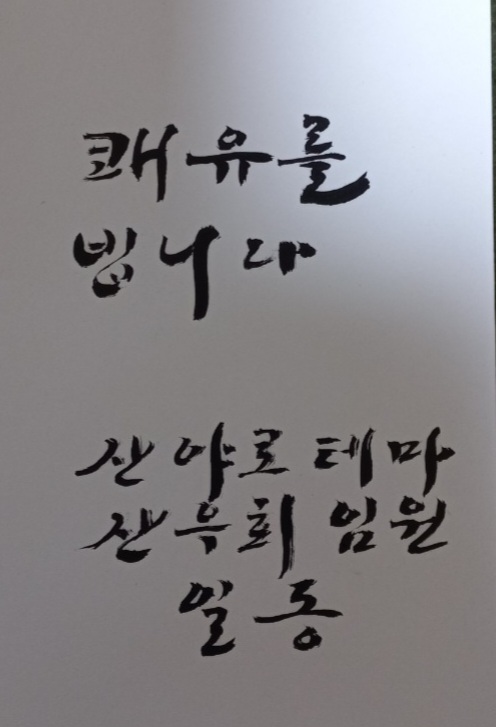 쾌유를
빕니다
산야로 테마
산우회 임원
일동